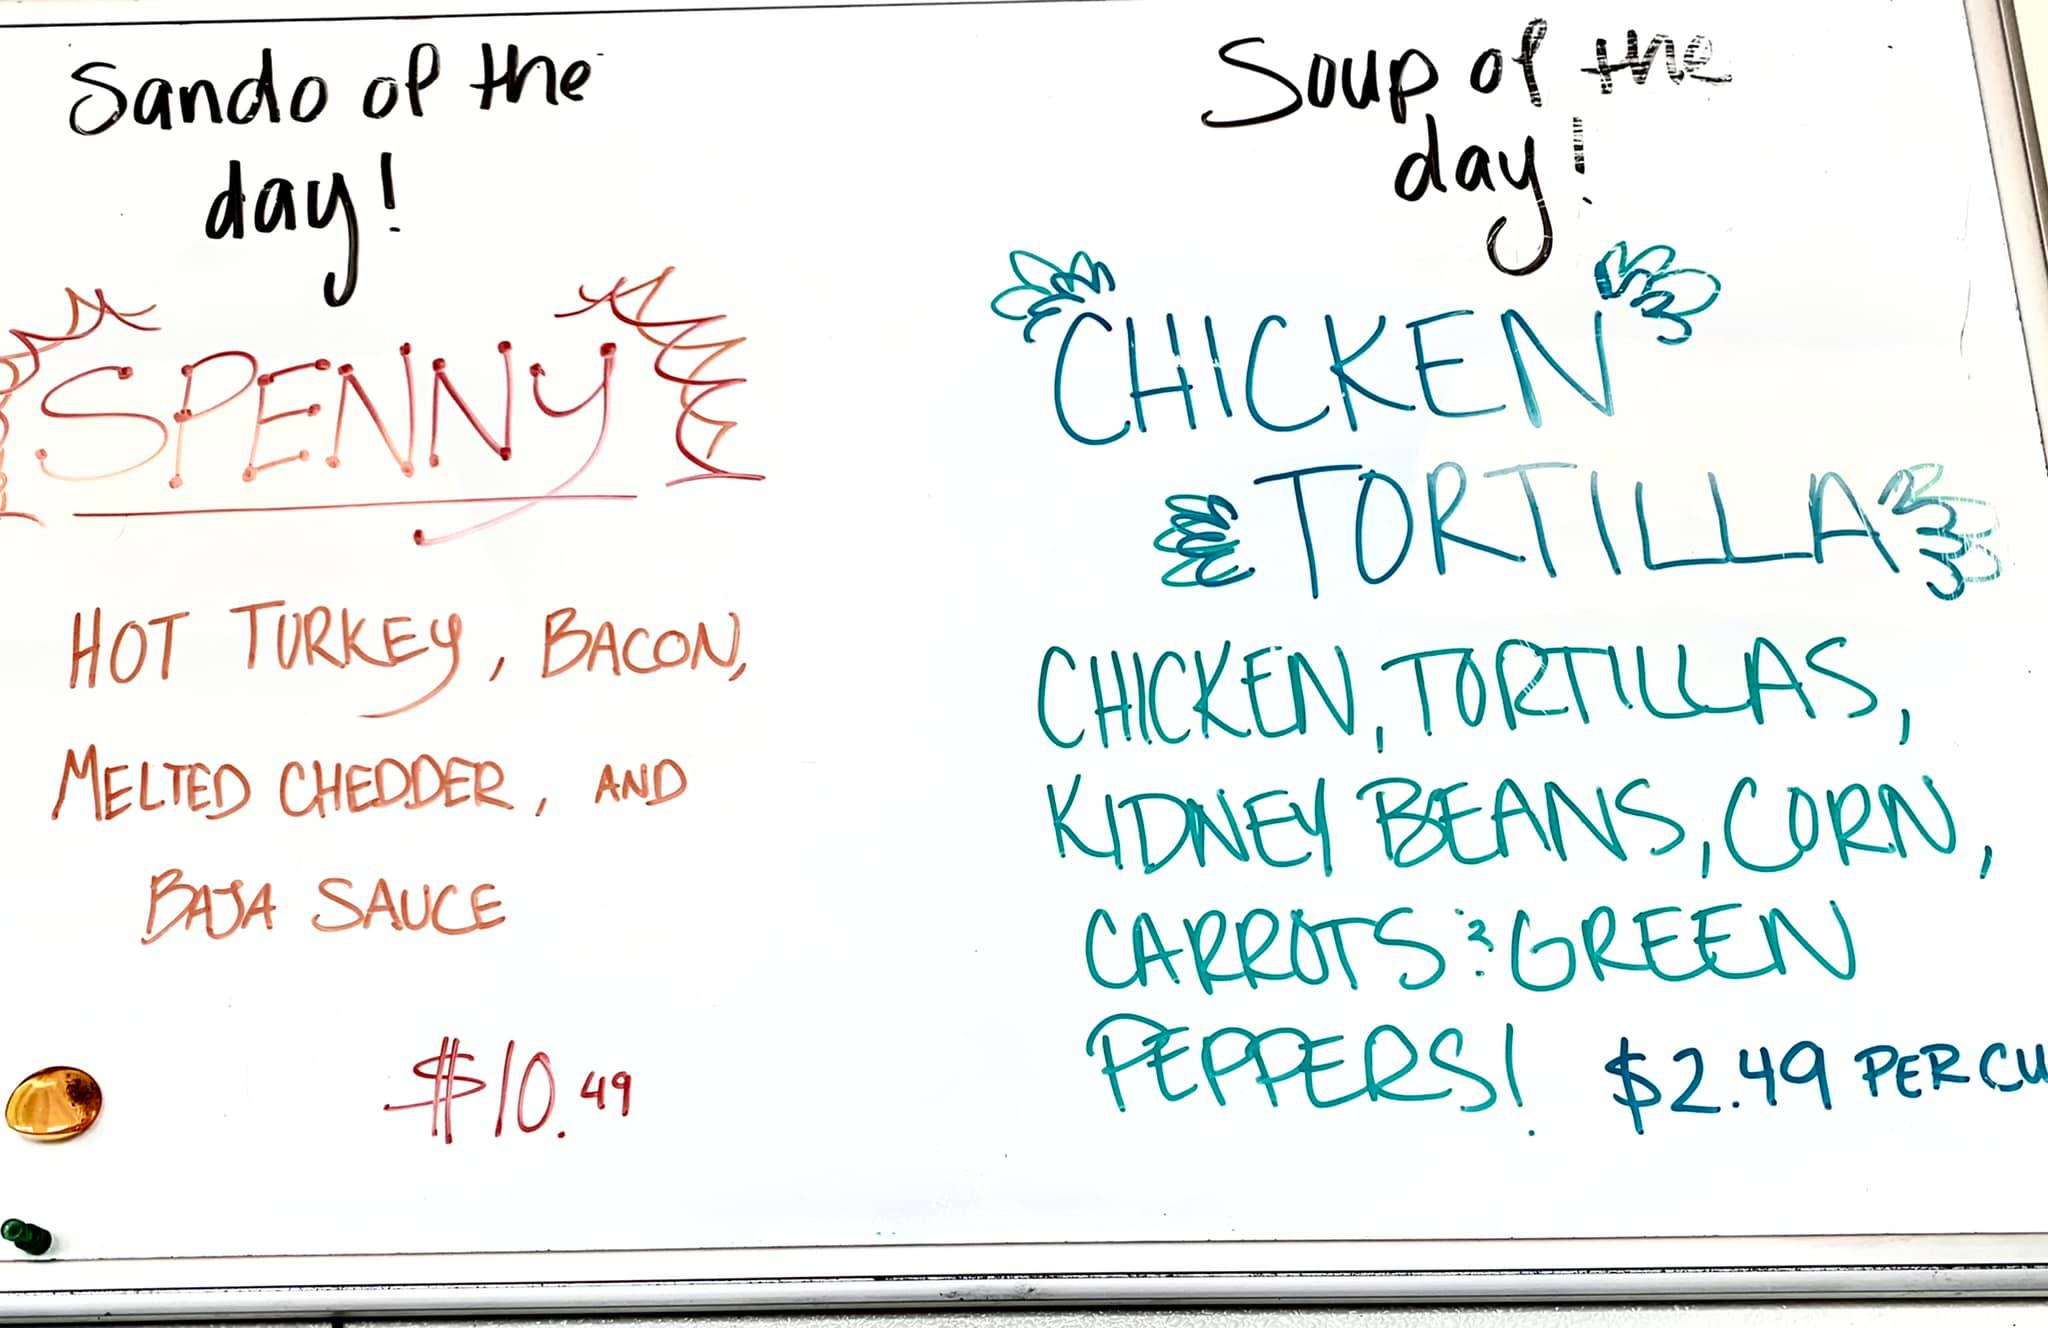 Sando of the
day!
SPENNY
HOT TURKEY, BACON,
MELTED CHEDDER, AND
BAJA SAUCE
$10.49
Soup of the
day!
CHICKEN
TORTILLA
CHICKEN, TORTILLAS,
KIDNEY BEANS, CORN,
CARROTS & GREEN
PEPPERS! $2.49 PER CU